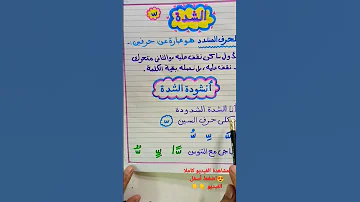 الشدة
الحرف المشدد هو عبارة عن حرفين
الأول ساكن نقف عليه والثاني متحرك
نقف عليه، بل نصله ببقية الكلمة.
أنشودة الشدة
أنا الشدة الشدودة
على حرف السين
مع التنوين
لمشاهدة الفيديو كاملا
اضغط أسفل
الفيديو